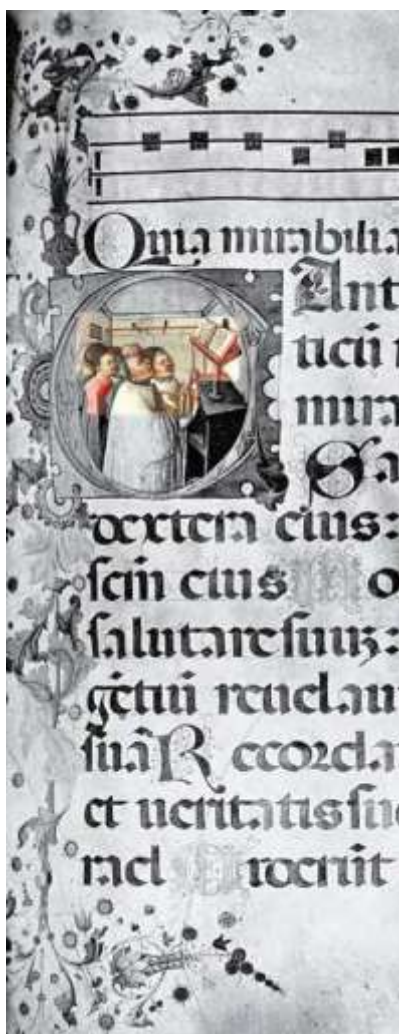 Quia mirabilia
Ant
ticū
mira
Sa
dextera eius:
scm̄ eius No
salutare suuz:
gētiū reuelaui
suā Recorda
et ueritatis sue
rael